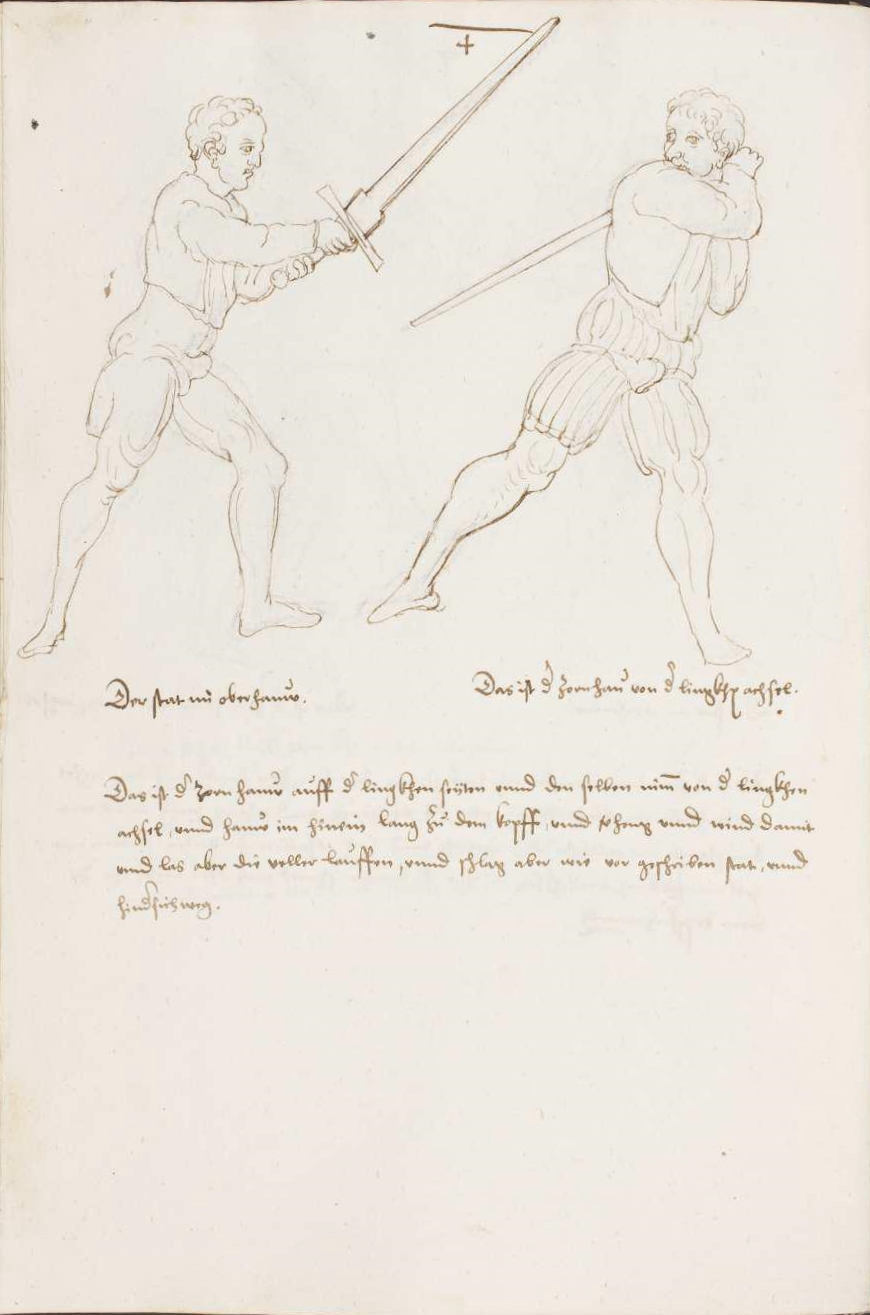 Der stat im oberhauw.
Das ist d' Zornhau von d' lingkhen achsel.
Das ist d' Zornhauw auff d' lingkhen seÿten vnnd den selben nim̄ von d' lingkhen
achsel, vnnd hauw im hinein lang zu dem kopff, vnnd v'heng vnnd wind damit
vnnd las aber die veller lauffen, vnnd schlag aber wie vor geschriben stat, vnnd
hind'sich weg.